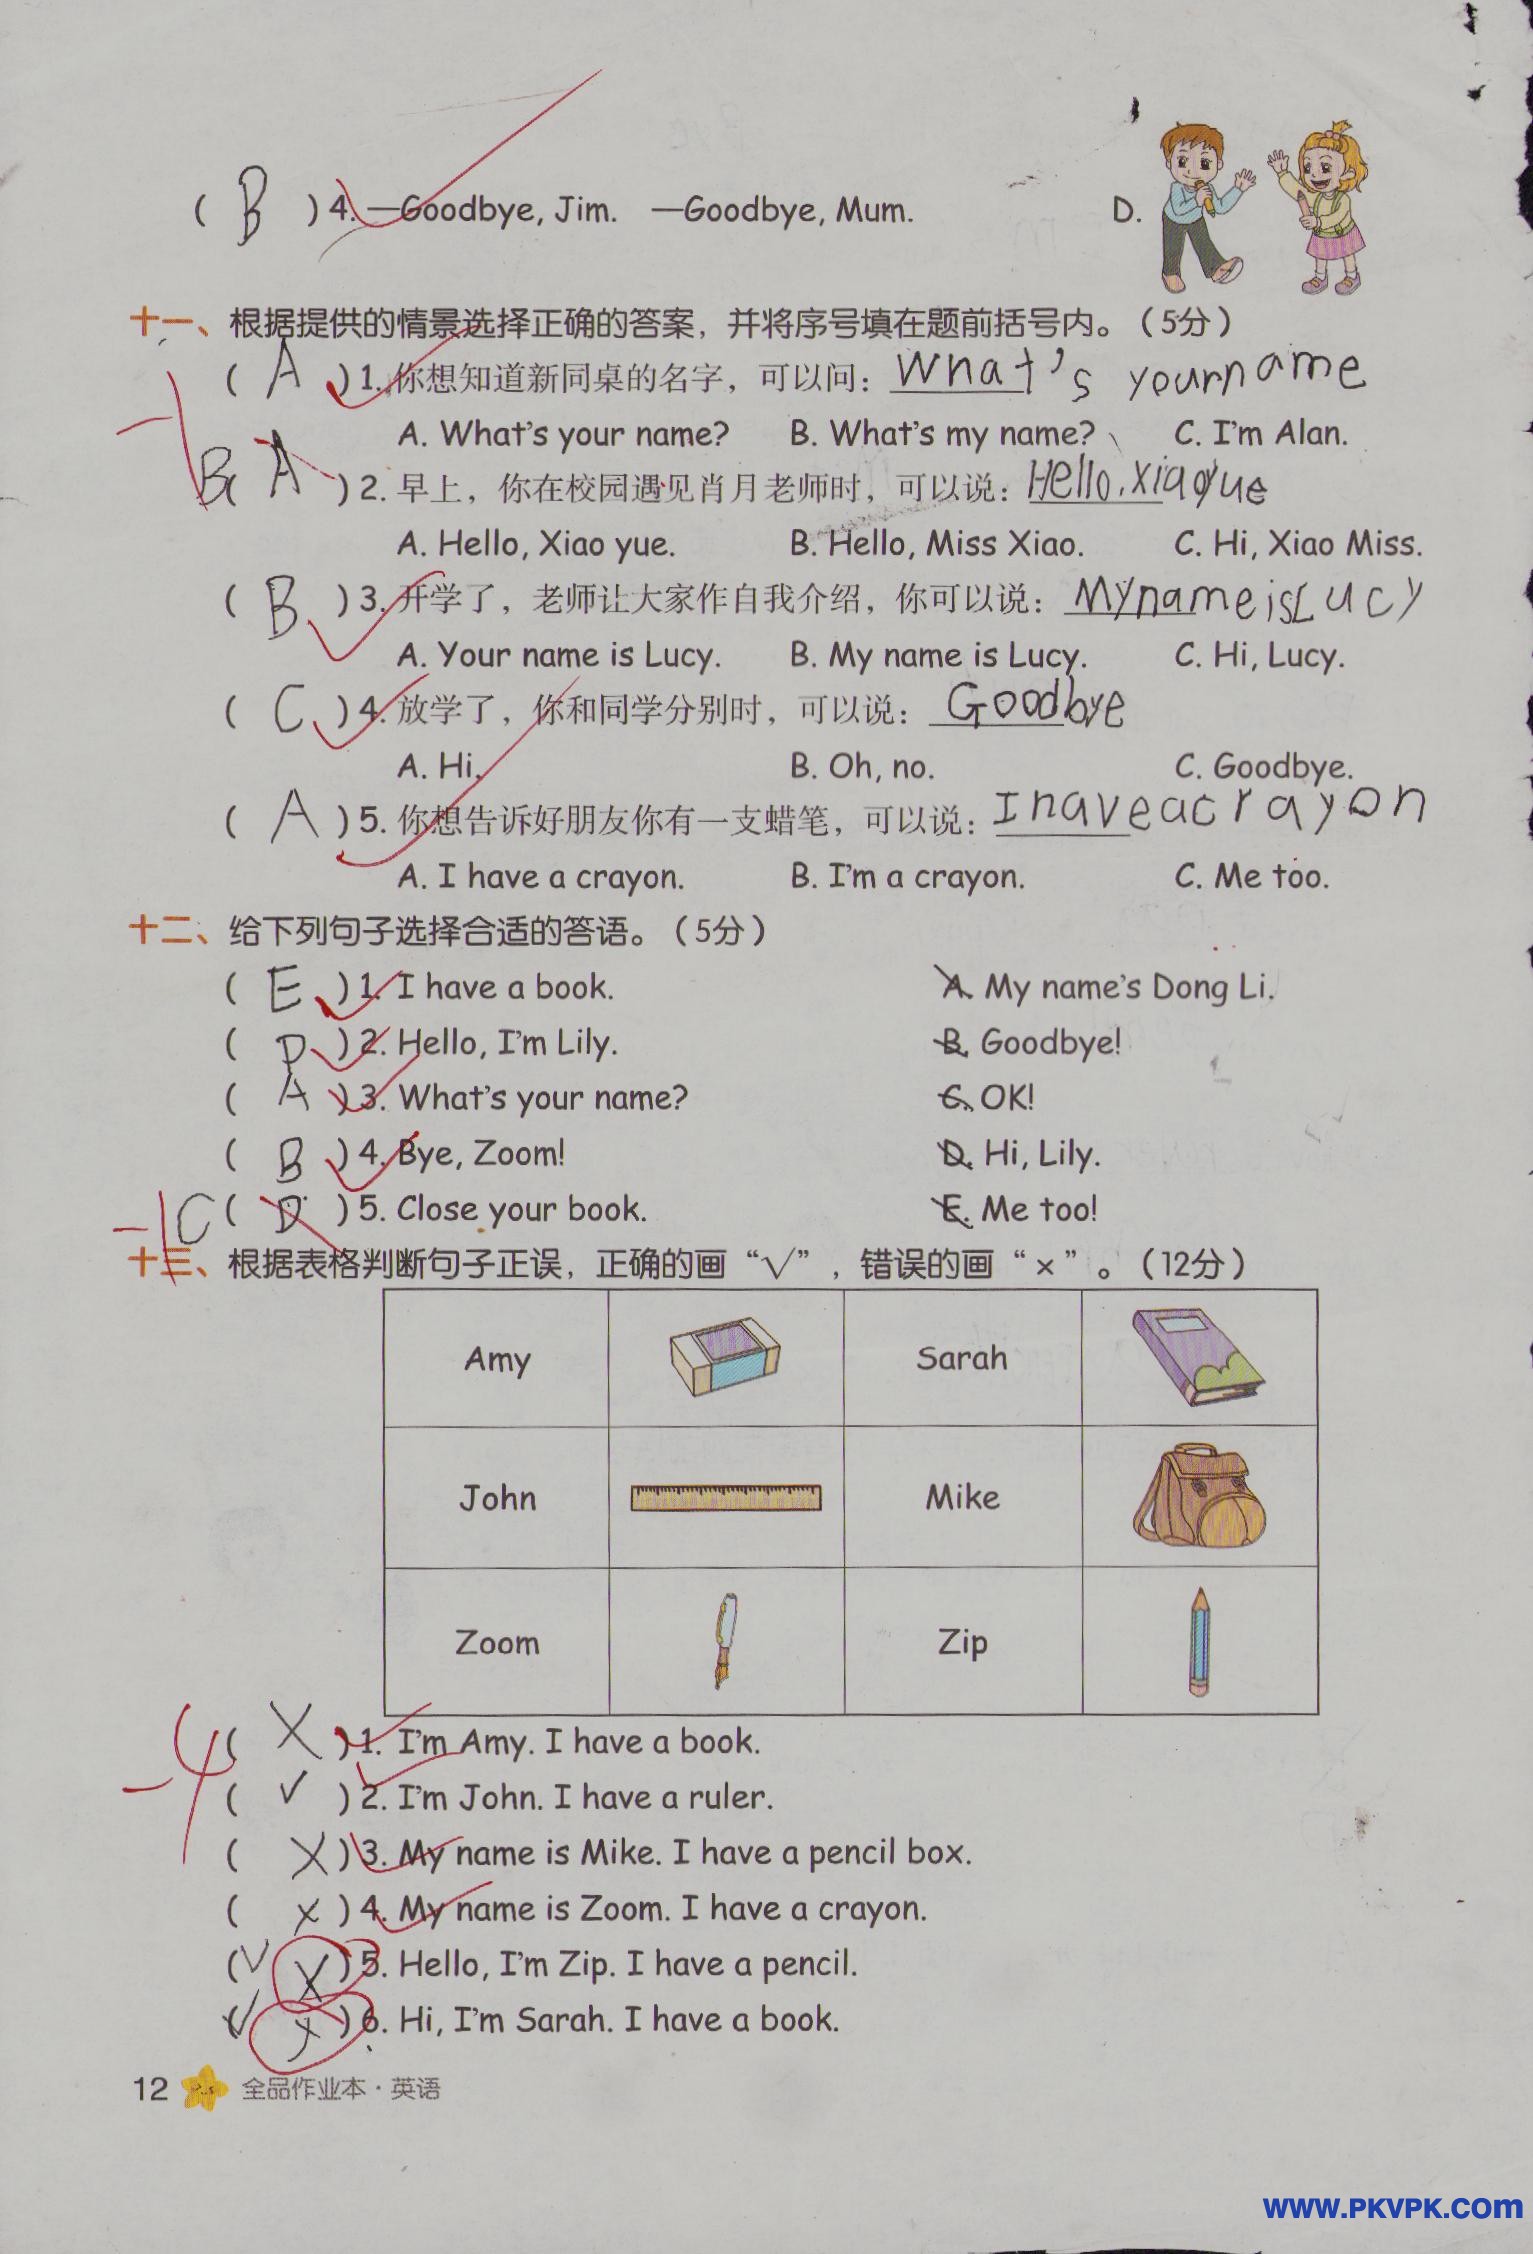 ( B ) 4. —Goodbye, Jim. —Goodbye, Mum. D.
十一、根据提供的情景选择正确的答案，并将序号填在题前括号内。（5分）
-1
( A ) 1. 你想知道新同桌的名字，可以问： What's your name
A. What's your name? B. What's my name? C. I'm Alan.
B ( A ) 2. 早上，你在校园遇见肖月老师时，可以说： Hello, Xiao yue
A. Hello, Xiao yue. B. Hello, Miss Xiao. C. Hi, Xiao Miss.
( B ) 3. 开学了，老师让大家作自我介绍，你可以说： My name is Lucy
A. Your name is Lucy. B. My name is Lucy. C. Hi, Lucy.
( C ) 4. 放学了，你和同学分别时，可以说： Goodbye
A. Hi. B. Oh, no. C. Goodbye.
( A ) 5. 你想告诉好朋友你有一支蜡笔，可以说： I have a crayon
A. I have a crayon. B. I'm a crayon. C. Me too.
十二、给下列句子选择合适的答语。（5分）
( E ) 1. I have a book. A. My name's Dong Li.
( D ) 2. Hello, I'm Lily. B. Goodbye!
( A ) 3. What's your name? C. OK!
( B ) 4. Bye, Zoom! D. Hi, Lily.
-1 C ( D ) 5. Close your book. E. Me too!
十三、根据表格判断句子正误，正确的画“√”，错误的画“×”。（12分）
Amy Sarah
John Mike
Zoom Zip
-4
( × ) 1. I'm Amy. I have a book.
( √ ) 2. I'm John. I have a ruler.
( × ) 3. My name is Mike. I have a pencil box.
( × ) 4. My name is Zoom. I have a crayon.
( √ × ) 5. Hello, I'm Zip. I have a pencil.
( √ × ) 6. Hi, I'm Sarah. I have a book.
12 全品作业本·英语
www.PKVPK.com